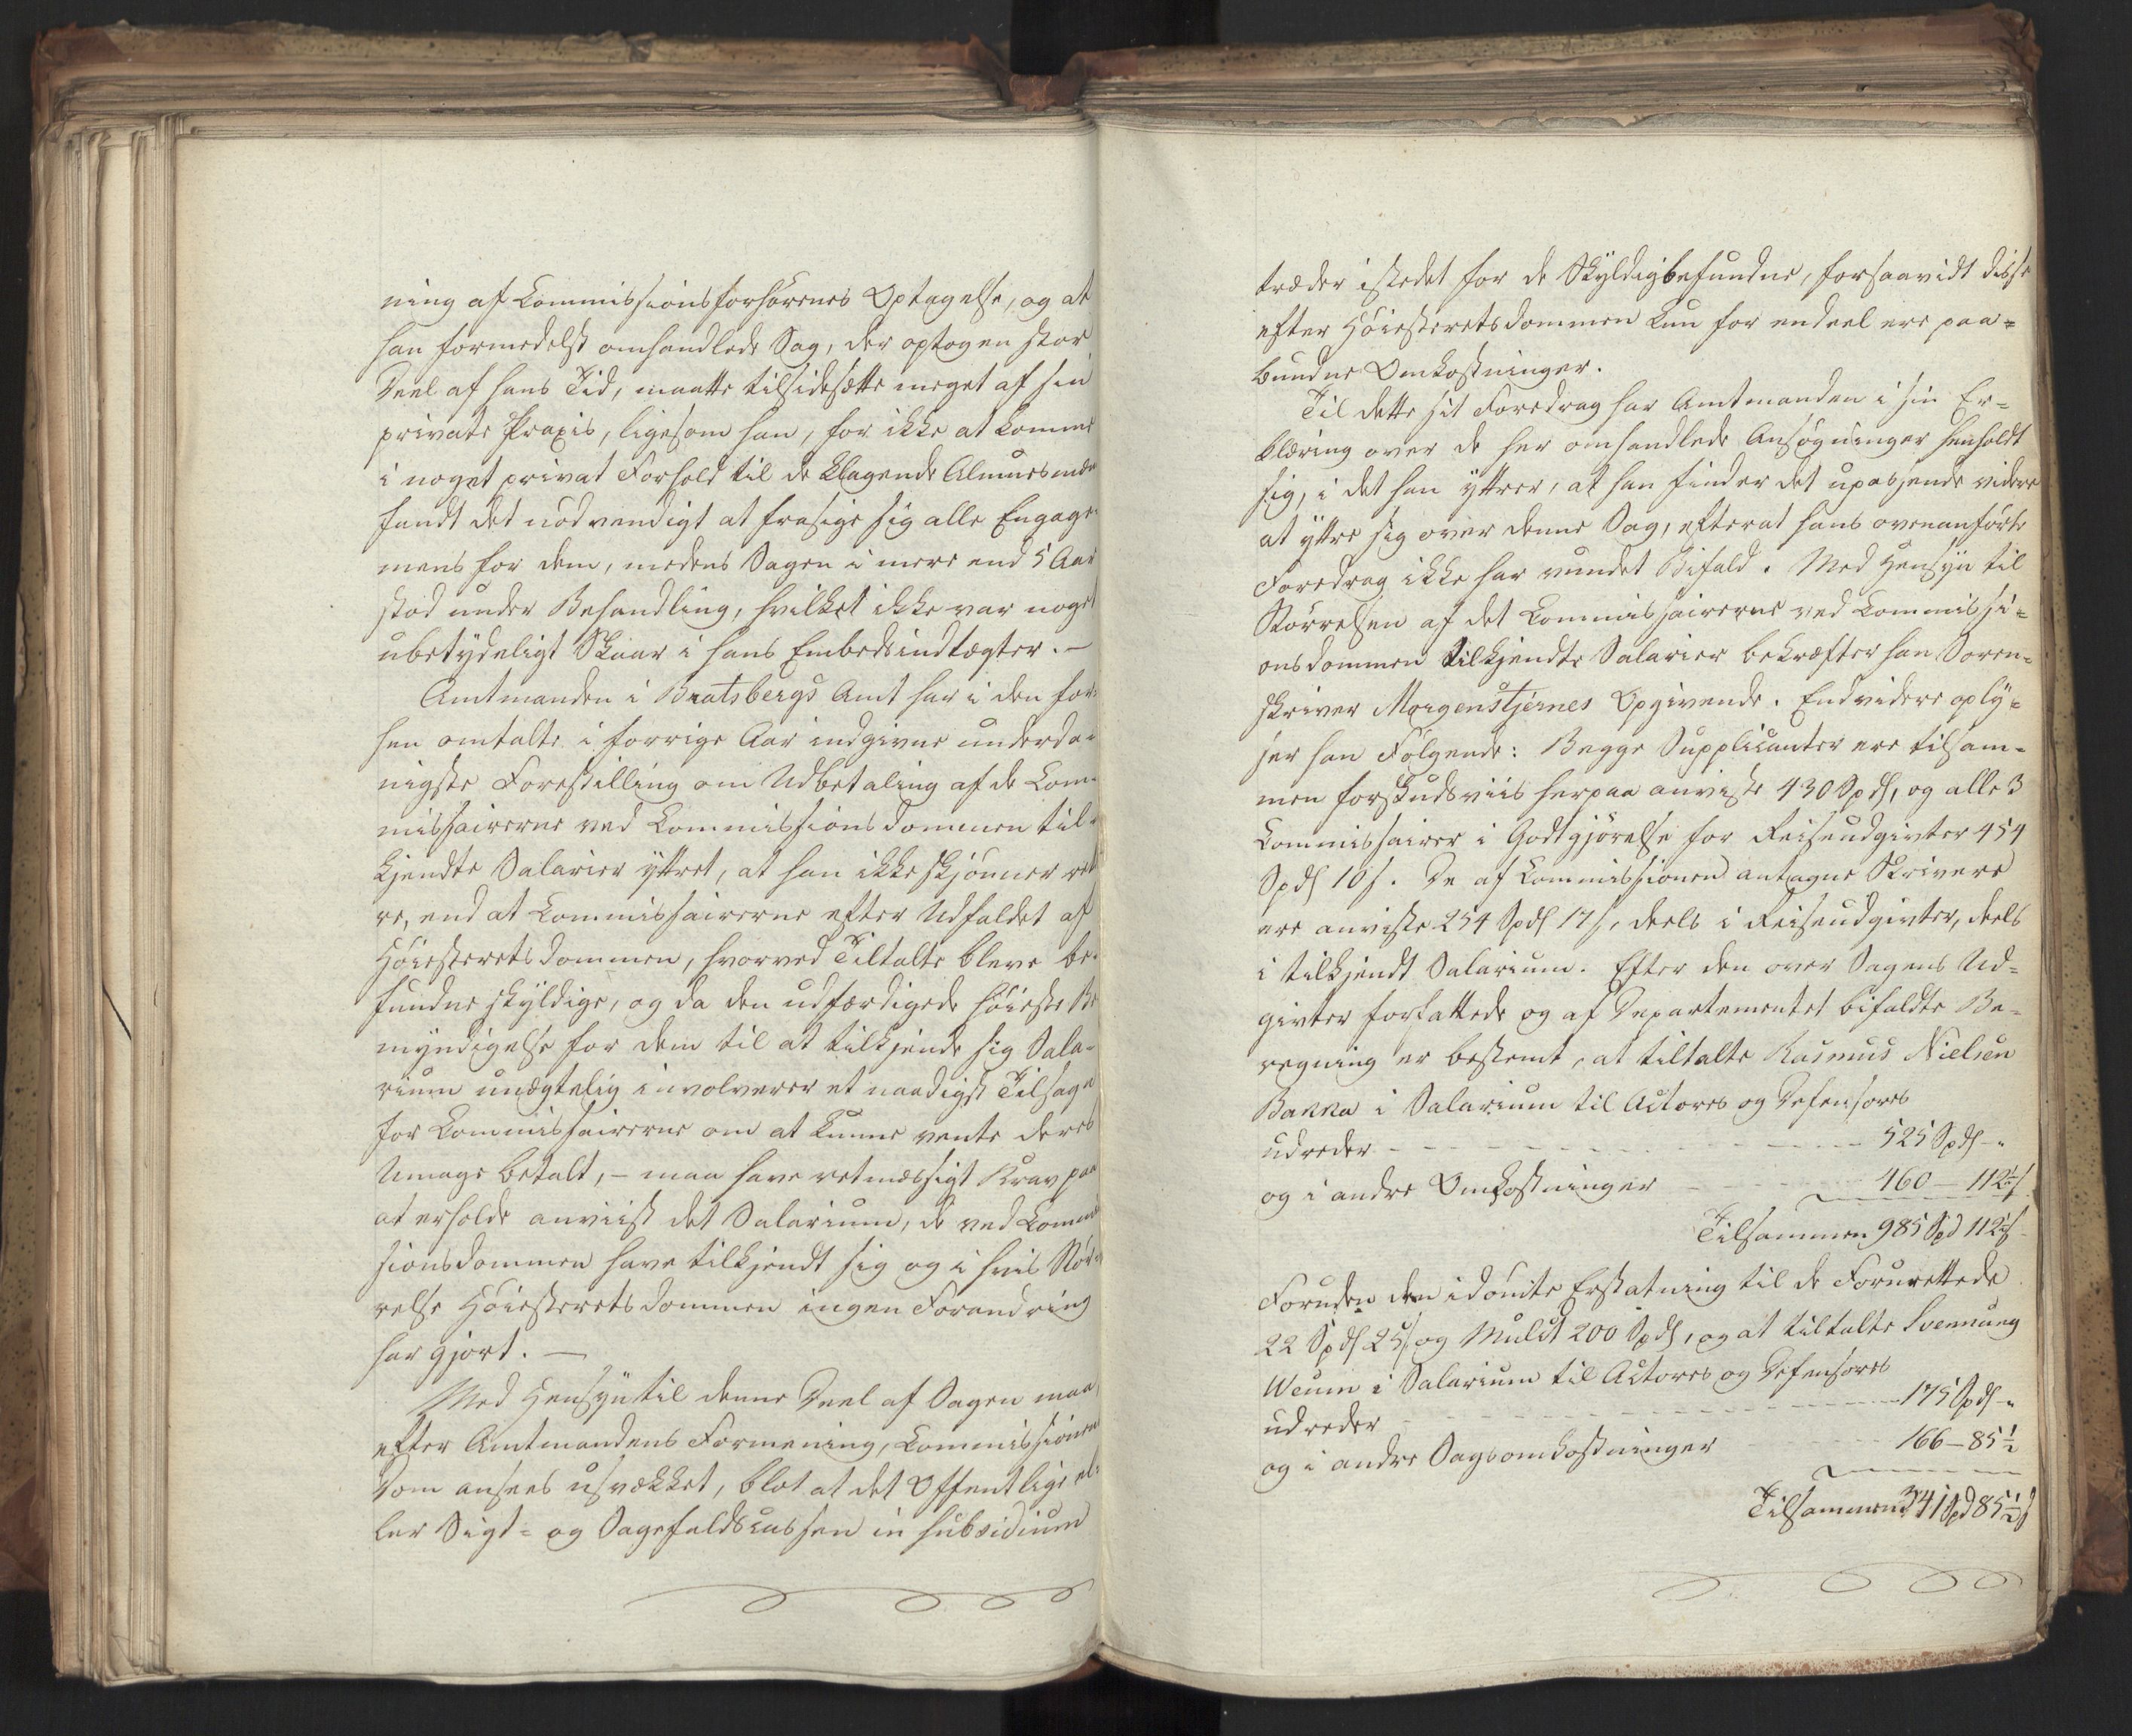 ning af Commissionsforhørenes Optagelse, og at
han formedelst omhandlede Sag, der optog en stor
Deel af hans Tid, maatte tilsidesætte meget af sin
private Praxis, ligesom han, for ikke at komme
i noget privat Forhold til de klagende Almuesmæn
fandt det nødvendigt at frasige sig alle Engage-
mens for dem, medens Sagen i mere end 5 Aar
stod under Behandling, hvilket ikke var noget
ubetydeligt Skaar i hans Embedsindtægter. —
Amtmanden i Bratsbergs Amt har i den for-
hen omtalte i forrige Aar indgivne underda-
nigste Forestilling om Udbetaling af de Com-
missairerne ved Commissionsdommen til-
kjendte Salarier yttret, at han ikke skjønner ret-
re, end at Commissairerne efter Udfaldet af
Høiesteretsdommen, hvorved Tiltalte bleve be-
fundne skyldige, og da den udfærdigede høieste Be
myndigelse for dem til at tilkjende sig Sala-
rium unægtelig involverer et naadigst Tilsagn
for Commissairerne om at kunne vente deres
Umage betalt, – maa have retmæssigt Krav paa
at erholde anviist det Salarium, de ved Commis
sionsdommen have tilkjendt sig og i hvis Stør-
relse Høiesteretsdommen ingen Forandring
har gjort. —
Med Hensyn til denne Deel af Sagen maa,
efter Amtmandens Formening, Commissionens
Dom ansees usvækket, blot at det Offentlige el-
ler Sigt- og Sagefaldscassen in subsidium
træder istedet for de Skyldigbefundne, forsaavidt disse
efter Høiesteretsdommen kun for endeel ere paa-
bundne Omkostninger.
Til dette sit Foredrag har Amtmanden i sin Er-
klæring over de her omhandlede Ansøgninger henholdt
sig, i det han yttrer, at han finder det upassende videre
at yttre sig over denne Sag, efterat hans ovenanførte
Foredrag ikke har vundet Bifald. Med Hensyn til
Størrelsen af det Commissairerne ved Commissi-
onsdommen tilkjendte Salarier bekræfter han Soren-
skriver Morgenstjernes Opgivende. Endvidere oply-
ser han Følgende: Begge Supplicanter ere tilsam-
men forskudsviis herpaa anviste 430 Spdl, og alle 3
Commissairer i Godtgjørelse for Reiseudgivter 454
Spdl 10 s. De af Commissionen antagne Skrivere
ere anviste 254 Spdl 17 s, deels i Reiseudgivter, deels
i tilkjendt Salarium. Efter den over Sagens Ud-
givter forfattede og af Departementet bifaldte Be-
regning er bestemt, at tiltalte Rasmus Nielsen
Bakka i Salarium til Actores og Defensores
udreder - - - 525 Spdl - "
og i andre Omkostninger - - - 460 — 112½ s
Tilsammen 985 Spd 112½ s
Foruden den idømte Erstatning til de Forurettede
22 Spdl 25 s, og Mulct 200 Spdl, og at tiltalte Svennung
Weum i Salarium til Actores og Defensores
udreder - - - 175 Spdl - "
og i andre Sagsomkostninger - - - 166 — 85½
Tilsammen 341 Spd 85½ s